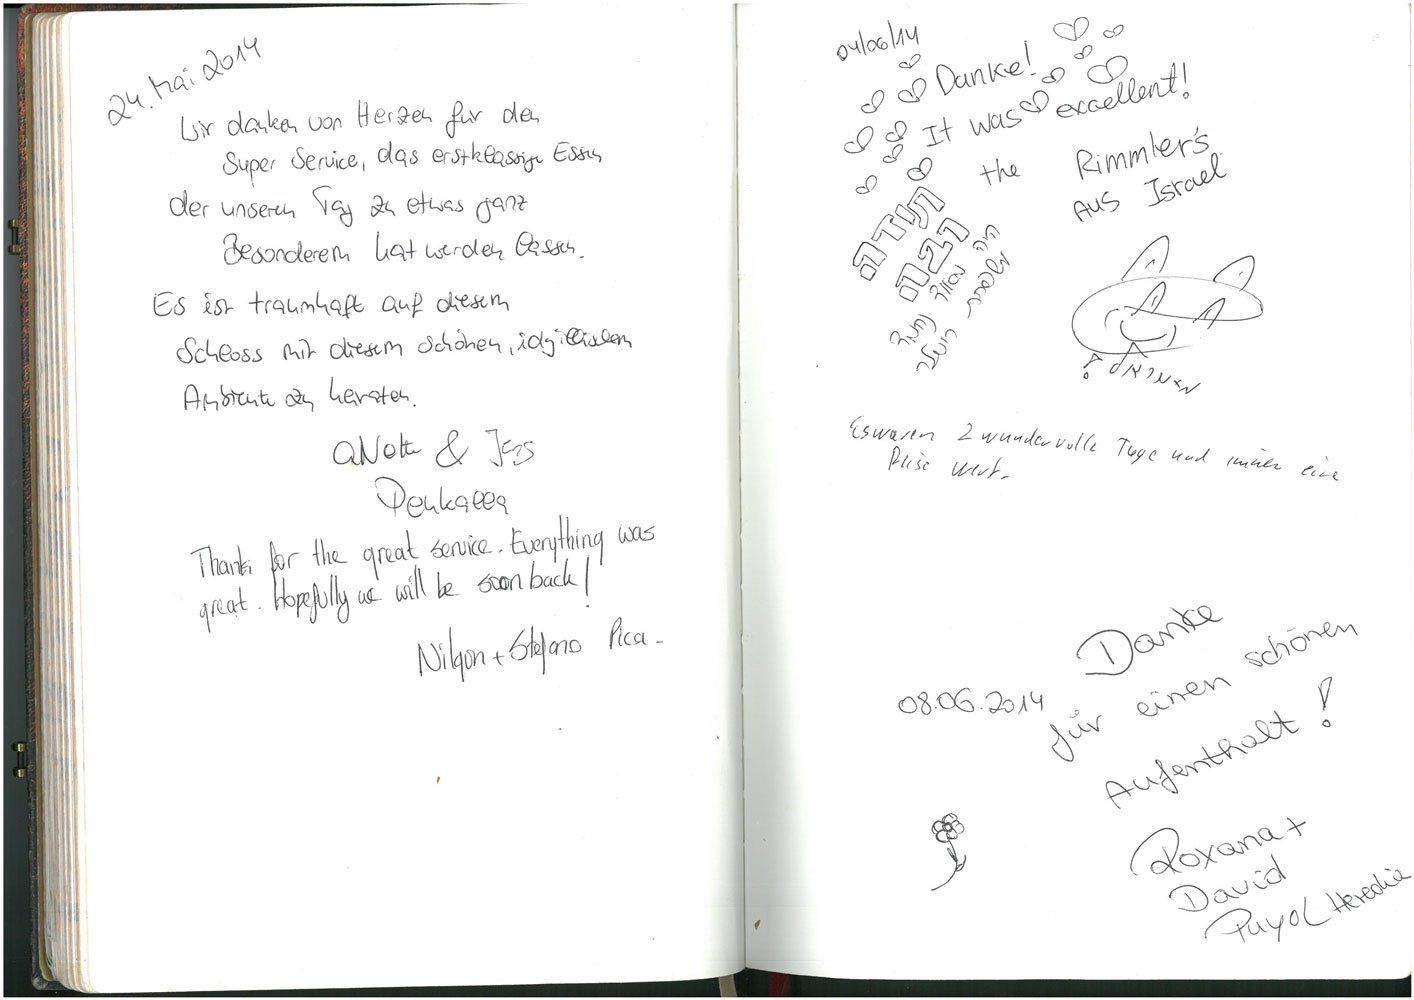 24. Mai 2014
Wir danken von Herzen für den
Super Service, das erstklassige Essen
der unseren Tag zu etwas ganz
Besonderem hat werden lassen.
Es ist traumhaft auf diesem
Schloss mit diesem schönen, idyllischen
Ambiente zu heiraten.
& Jens
Thank for the great service. Everything was
great. Hopefully we will be soon back!
Nilgün + Stefano Pica
04/06/14
Danke!
It was excellent!
the Rimmler's
aus Israel
תודה
רבה
היה מאוד
Es waren 2 wundervolle Tage und immer eine
Reise wert.
08.06.2014
Danke
für einen schönen
Aufenthalt!
Roxana +
David
Puyol Heredia